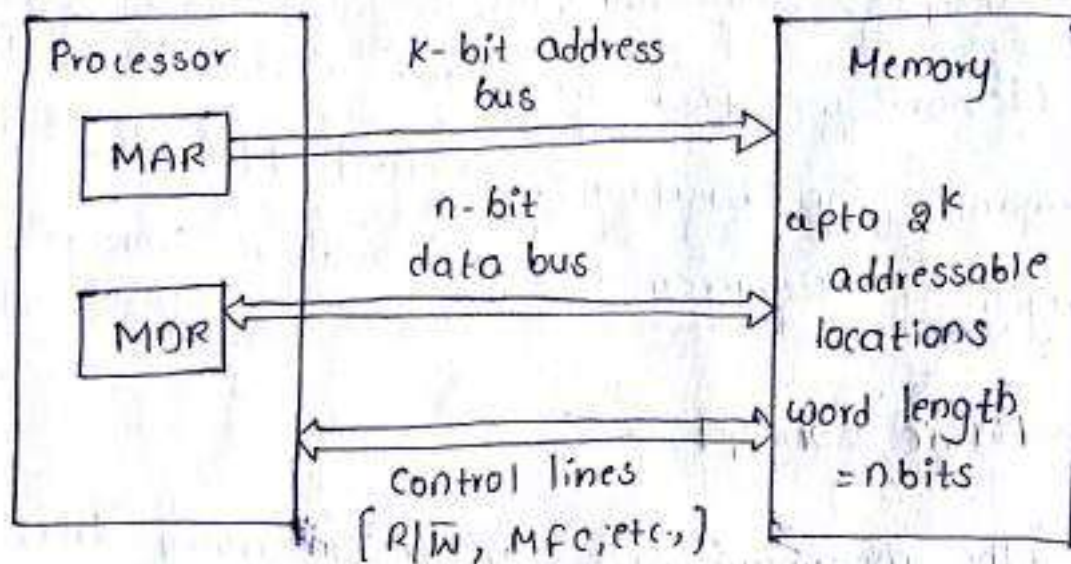 Processor
MAR
MDR
k-bit address
bus
n-bit
data bus
control lines
[R/W̅, MFC, etc.,]
Memory
upto 2^k
addressable
locations
word length
= n bits